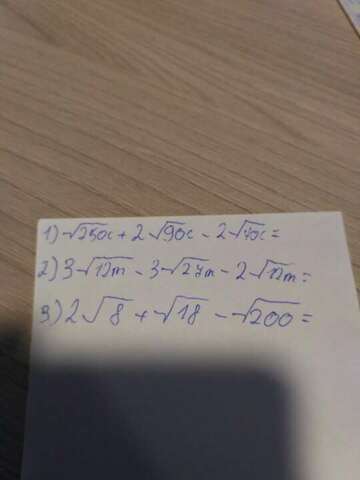 1) √25x + 2√9x - 2√4x =
2) 3√12m - 3√27m - 2√12m =
3) 2√8 + √18 - √200 =